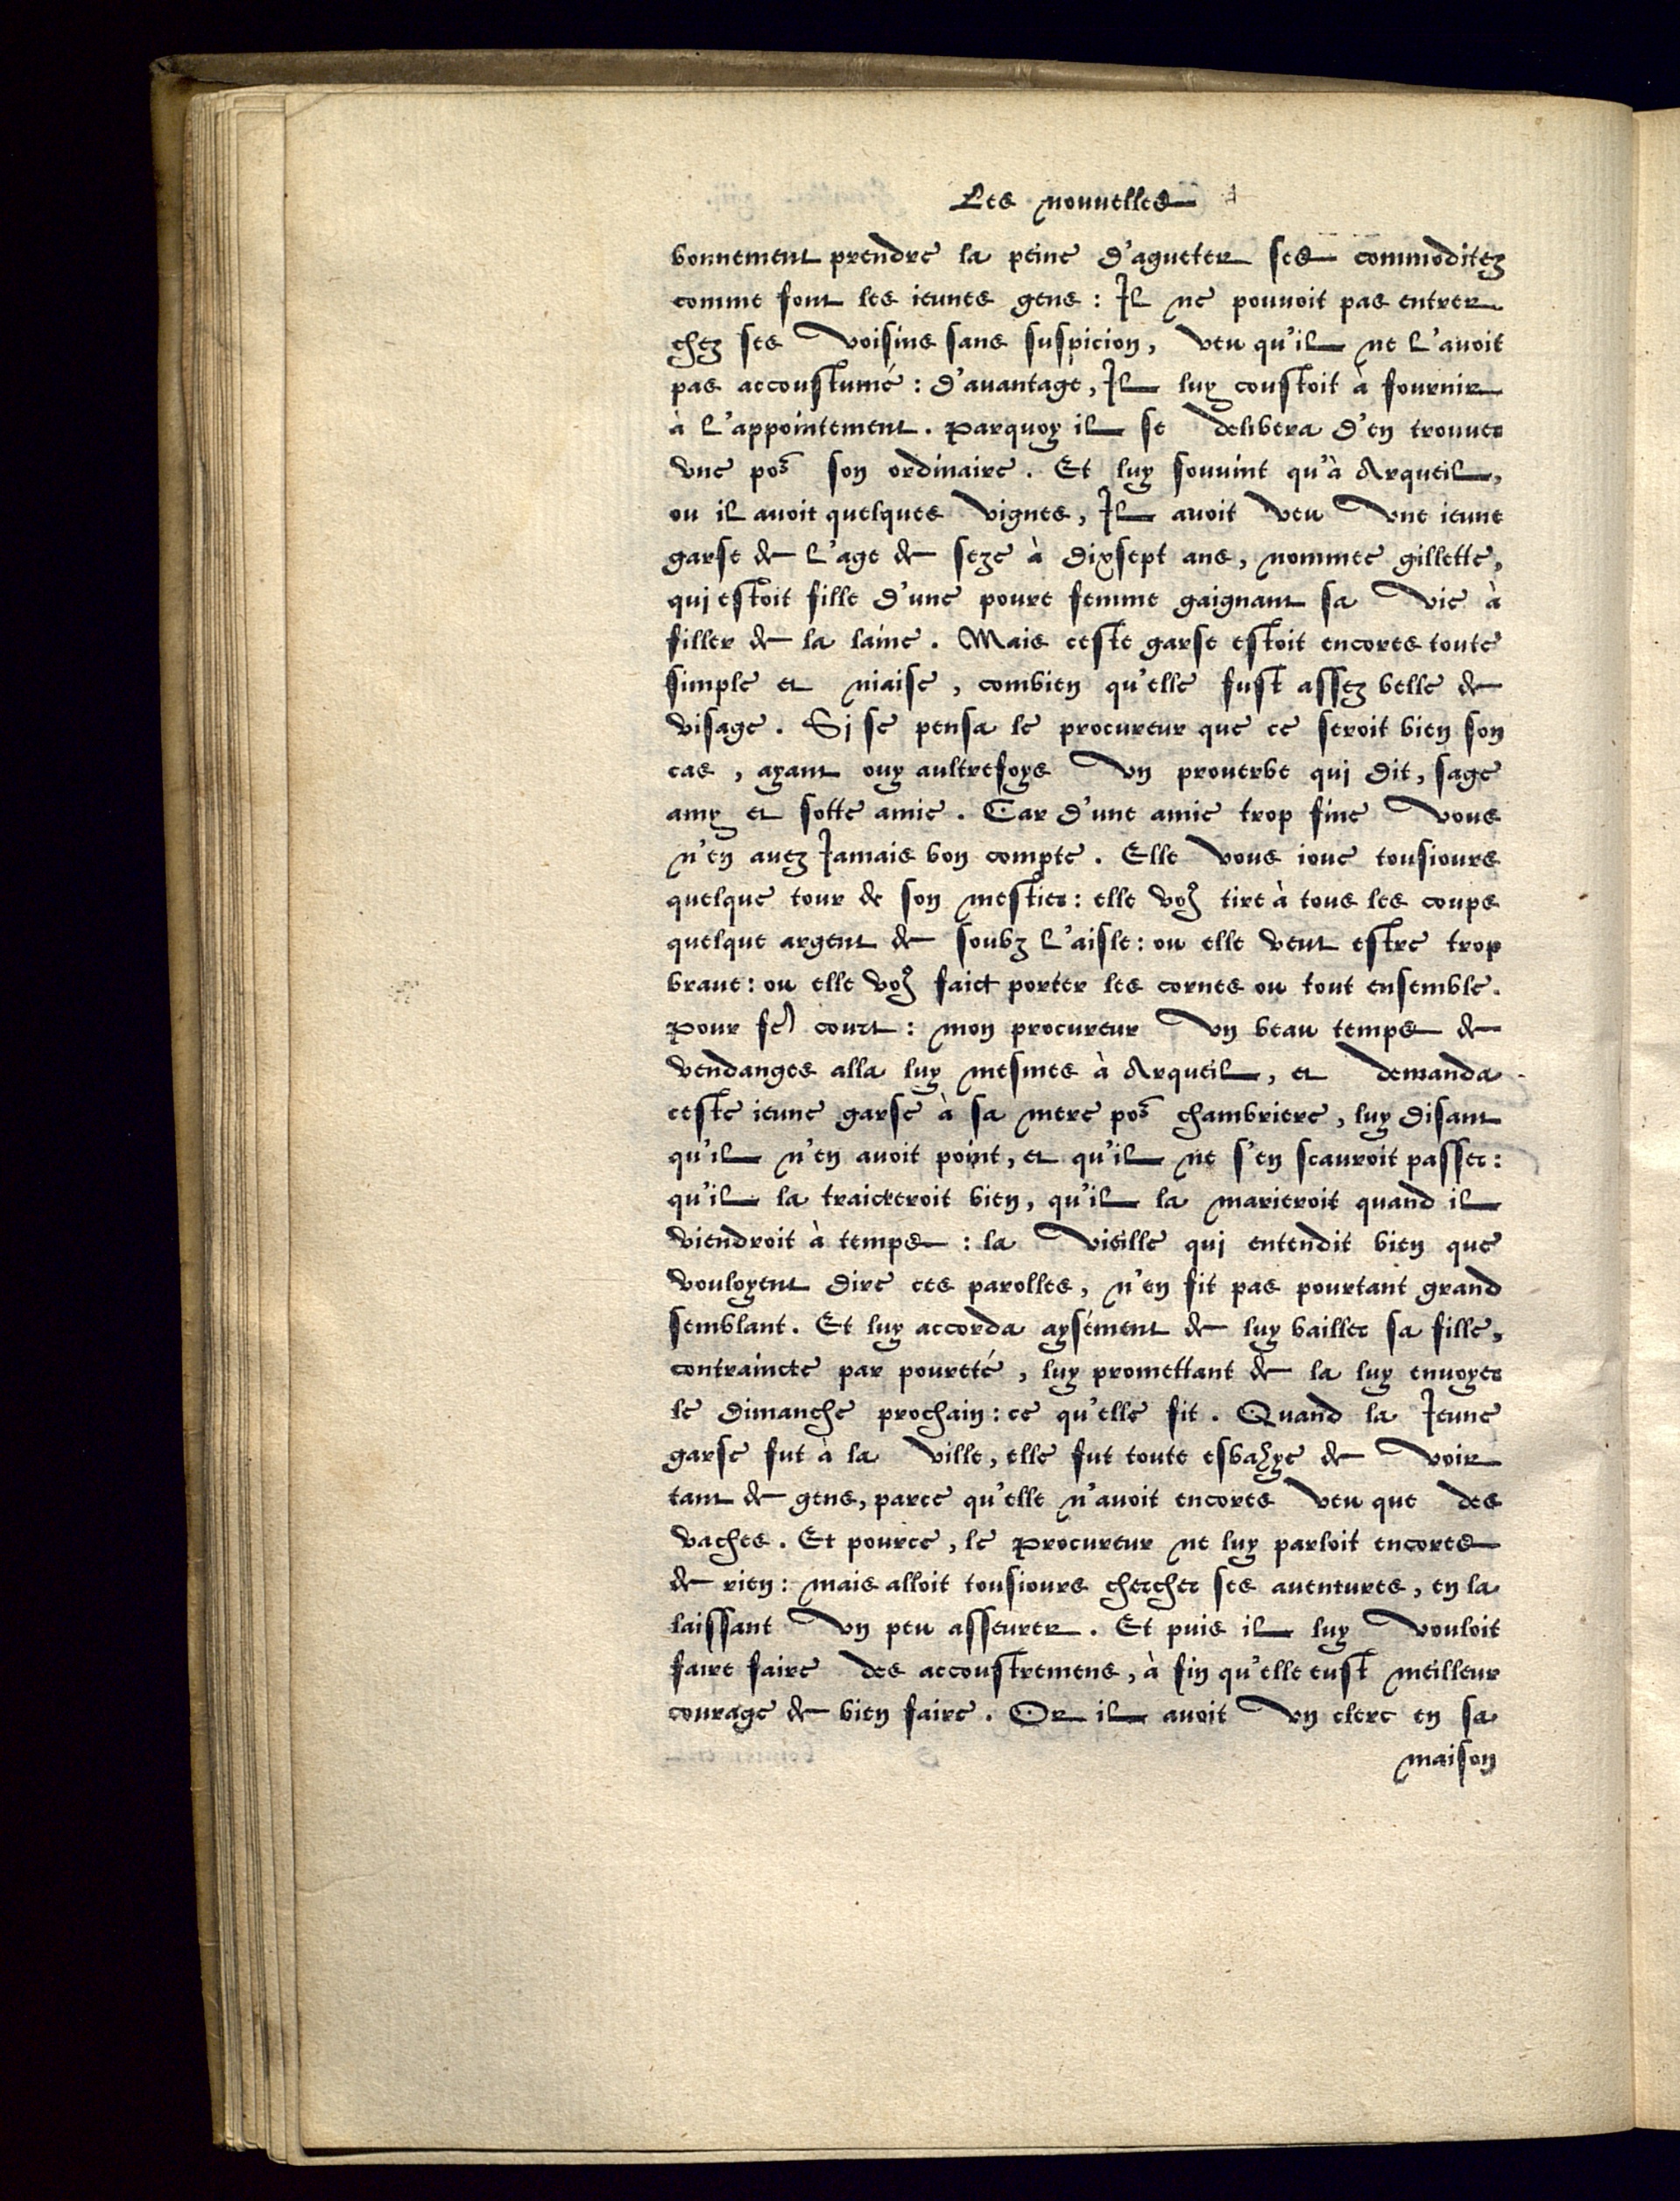 Les nouuelles
bonnement prendre la peine d'agueter ses commoditez
comme font les ieunes gens : Il ne pouuoit pas entrer
chez ses voisins sans suspicion, veu qu'il ne l'auoit
pas accoustumé : d'auantage, Il luy coustoit à fournir
à l'appointement. Parquoy il se delibera d'en trouuer
vne poᷣ son ordinaire. Et luy souuint qu'à Arqueil,
ou il auoit quelques vignes, Il auoit veu vne ieune
garse de l'age de seze à dixsept ans, nommee gillette,
qui estoit fille d'une poure femme gaignant sa vie à
filler de la laine. Mais ceste garse estoit encores toute
simple et niaise, combien qu'elle fust assez belle de
visage. Si se pensa le procureur que ce seroit bien son
cas, ayant ouy aultrefoys vn prouerbe qui dit, sage
amy et sotte amie. Car d'une amie trop fine vous
n'en auez Jamais bon compte. Elle vous ioue tousiours
quelque tour de son mestier : elle voꝰ tire à tous les coups
quelque argent de soubz l'aisle : ou elle veut estre trop
braue : ou elle voꝰ faict porter les cornes ou tout ensemble.
Pour court : mon procureur vn beau temps de
vendanges alla luy mesmes à Arqueil, et demanda
ceste ieune garse à sa mere poᷣ chambriere, luy disant
qu'il n'en auoit point, et qu'il ne s'en scauroit passer :
qu'il la traicteroit bien, qu'il la marieroit quand il
viendroit à temps : la vieille qui entendit bien que
vouloyent dire ces parolles, n'en fit pas pourtant grand
semblant. Et luy accorda aysément de luy bailler sa fille,
contraincte par poureté, luy promettant de la luy enuoyer
le dimanche prochain : ce qu'elle fit. Quand la Jeune
garse fut à la ville, elle fut toute esbahye de voir
tant de gens, parce qu'elle n'auoit encores veu que des
vaches. Et pource, le Procureur ne luy parloit encores
de rien : mais alloit tousiours chercher ses auentures, en la
laissant vn peu asseurer. Et puis il luy vouloit
faire faire des accoustremens, à fin qu'elle eust meilleur
courage de bien faire. Or il auoit vn clerc en sa
maison